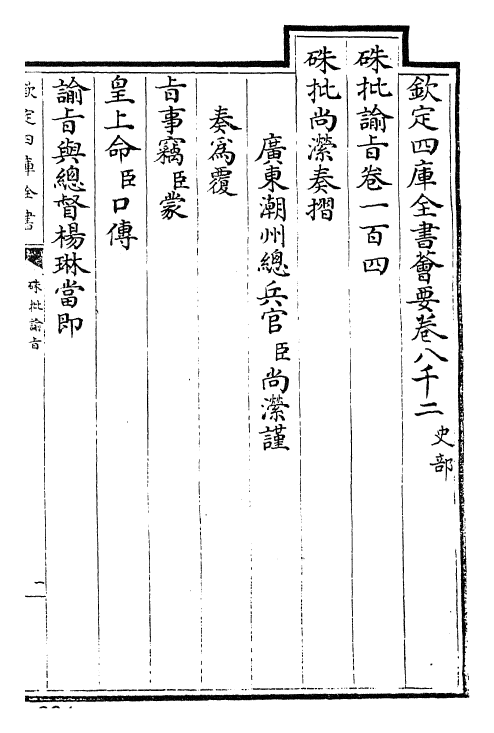 欽定四庫全書薈要卷八千二 史部
硃批諭旨卷一百四
硃批尚瀠奏摺
廣東潮州總兵官臣尚瀠謹
奏為覆
旨事竊臣蒙
皇上命臣口傳
諭旨與總督楊琳當即
欽定四庫全書 硃批諭旨 一